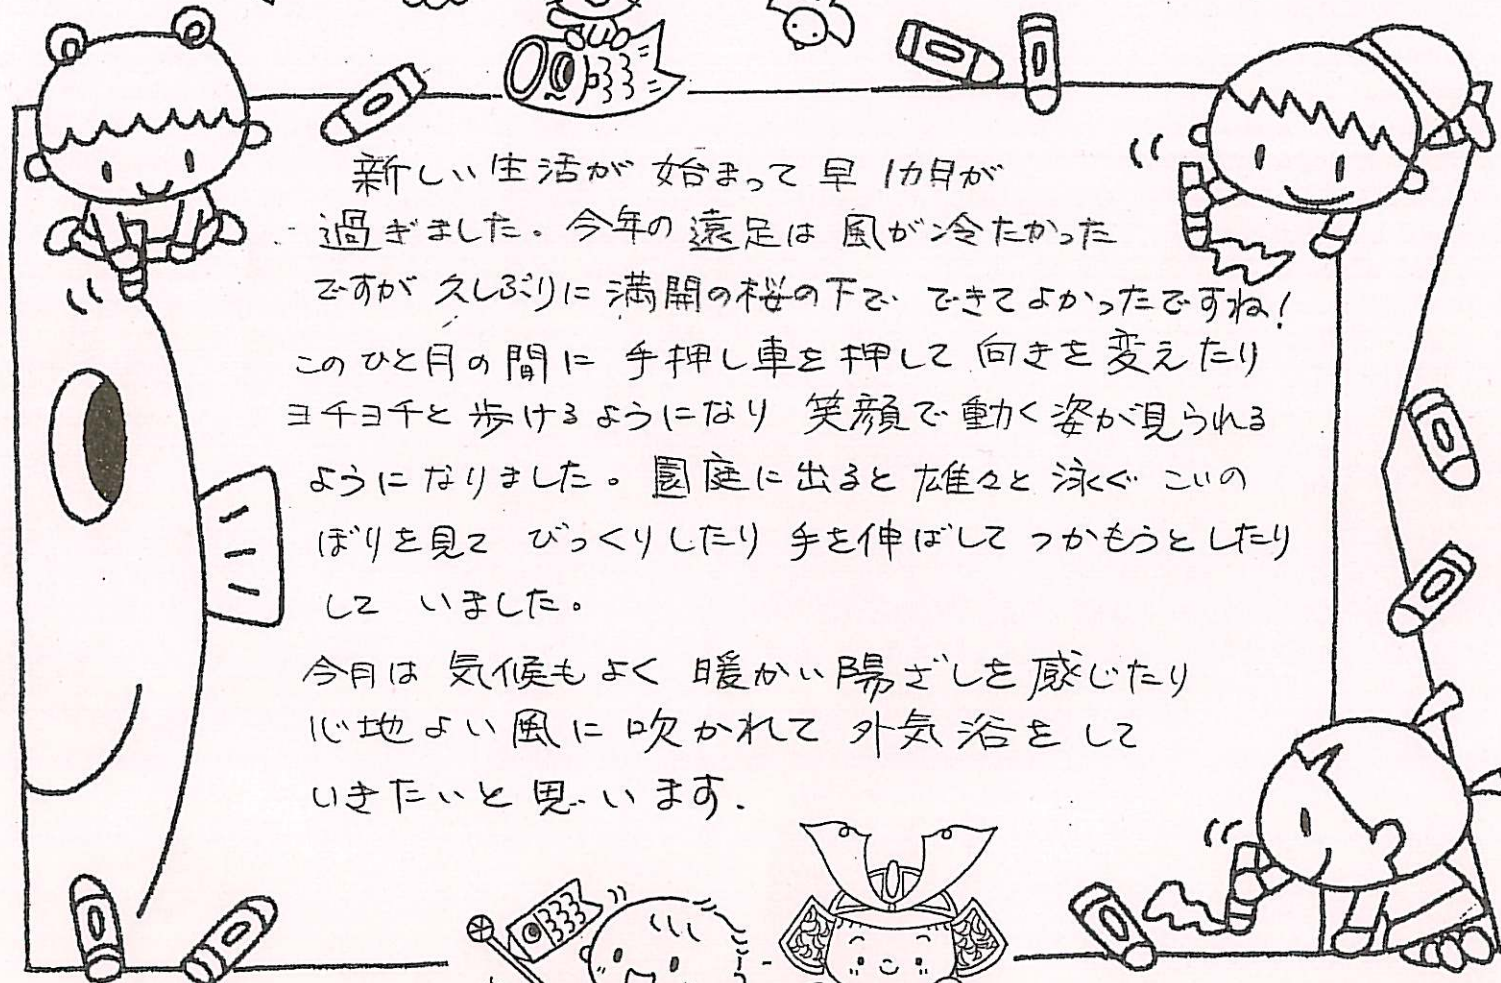 新しい生活が 始まって 早 1カ月が
過ぎました。今年の遠足は 風が冷たかった
ですが 久しぶりに満開の桜の下で できてよかったですね！
このひと月の間に 手押し車を押して 向きを変えたり
ヨチヨチと歩けるようになり 笑顔で動く姿が見られる
ようになりました。園庭に出ると 雄々と泳ぐ こいの
ぼりを見て びっくりしたり 手を伸ばして つかもうとしたり
して いました。
今月は 気候もよく 暖かい陽ざしを感じたり
心地よい風に吹かれて 外気浴をして
いきたいと思います.